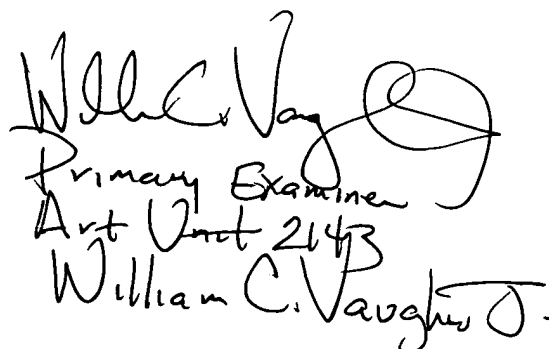 William C. Vaug
Primary Examiner
Art Unit 2143
William C. Vaughn Jr.